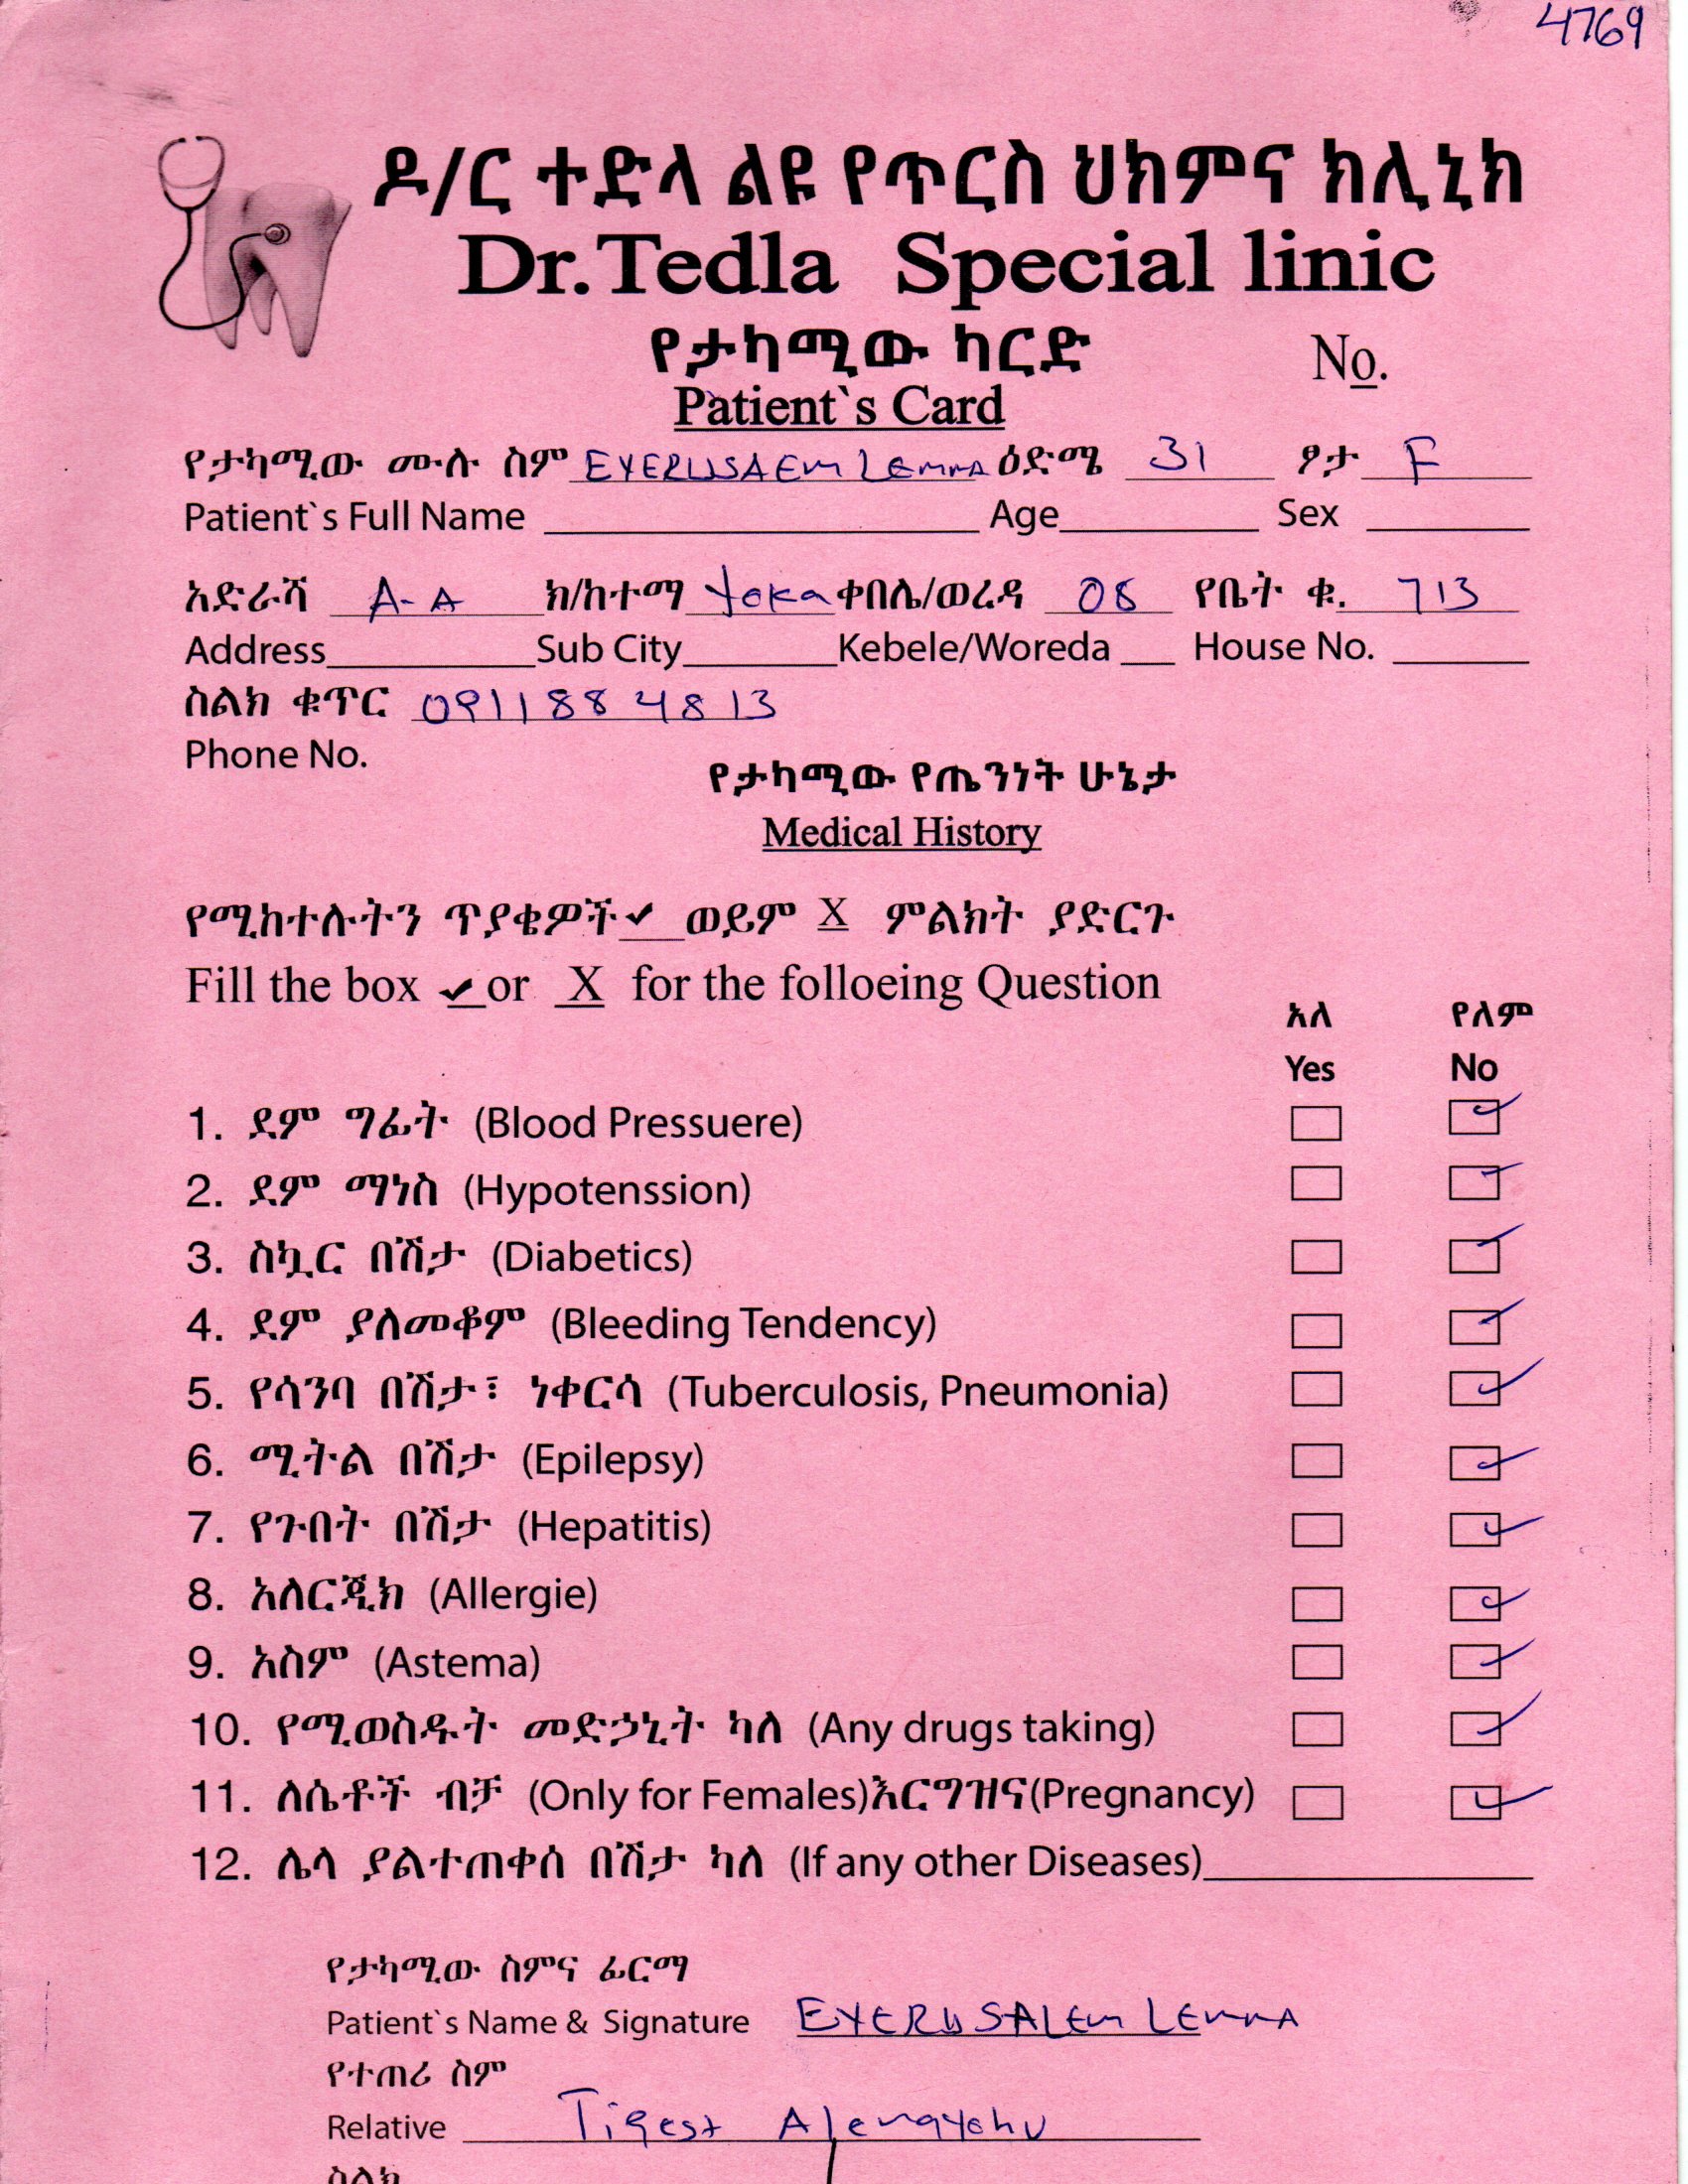 4769
ዶ/ር ተድላ ልዩ የጥርስ ህክምና ክሊኒክ
Dr.Tedla Special linic
የታካሚው ካርድ
No.
Patient`s Card
የታካሚው ሙሉ ስም EYERUSAEM LEMMA ዕድሜ 31 ፆታ F
Patient`s Full Name Age Sex
አድራሻ A-A ክ/ከተማ ቀበሌ/ወረዳ 08 የቤት ቁ. 713
Address Sub City Kebele/Woreda House No.
ስልክ ቁጥር 0911884813
Phone No.
የታካሚው የጤንነት ሁኔታ
Medical History
የሚከተሉትን ጥያቄዎች ✔ ወይም X ምልክት ያድርጉ
Fill the box ✔ or X for the folloeing Question
አለ የለም
Yes No
1. ደም ግፊት (Blood Pressuere)
2. ደም ማነስ (Hypotenssion)
3. ስኳር በሽታ (Diabetics)
4. ደም ያለመቆም (Bleeding Tendency)
5. የሳንባ በሽታ፣ ነቀርሳ (Tuberculosis, Pneumonia)
6. ሚትል በሽታ (Epilepsy)
7. የጉበት በሽታ (Hepatitis)
8. አለርጂክ (Allergie)
9. አስም (Astema)
10. የሚወስዱት መድኃኒት ካለ (Any drugs taking)
11. ለሴቶች ብቻ (Only for Females)እርግዝና(Pregnancy)
12. ሌላ ያልተጠቀሰ በሽታ ካለ (If any other Diseases)
የታካሚው ስምና ፊርማ
Patient`s Name & Signature EYERUSALEM LEMMA
የተጠሪ ስም
Relative Tigest Alemayehu
ስልክ